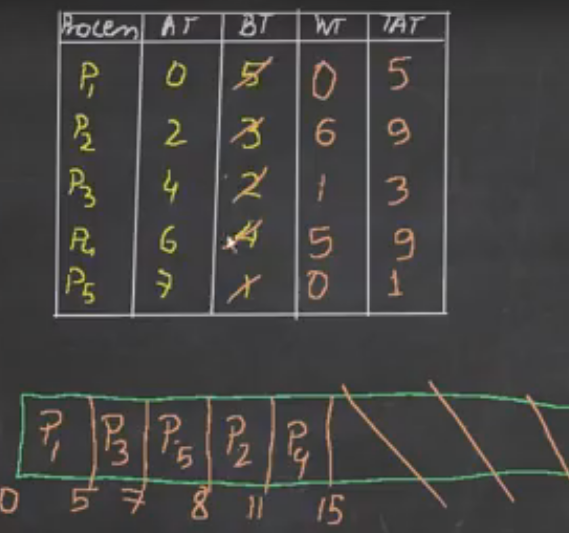 Process AT BT WT TAT
P1 0 5 0 5
P2 2 3 6 9
P3 4 2 1 3
P4 6 4 5 9
P5 7 1 0 1
P1 P3 P5 P2 P4
0 5 7 8 11 15